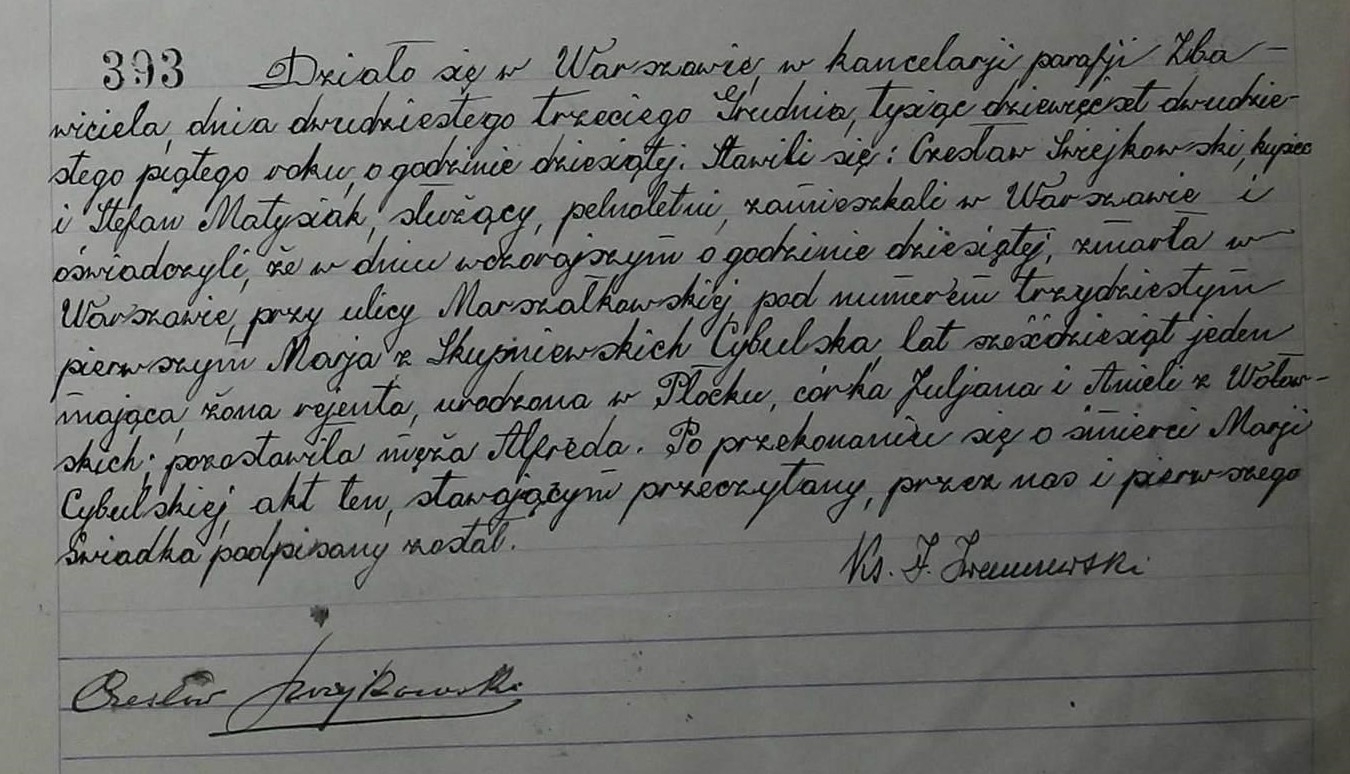 393 Działo się w Warszawie, w kancelarji parafji Zba-
wiciela, dnia dwudziestego trzeciego Grudnia, tysiąc dziewięćset dwudzie-
stego piątego roku, o godzinie dziesiątej. Stawili się: Czesław Świejkowski, kupiec
i Stefan Matysiak, służący, pełnoletni, zamieszkali w Warszawie i
oświadczyli, że w dniu wczorajszym o godzinie dziesiątej, zmarła w
Warszawie, przy ulicy Marszałkowskiej, pod numerem trzydziestym
pierwszym Marja z Skupniewskich Cybulska, lat sześćdziesiąt jeden
mająca, żona rejenta, urodzona w Płocku, córka Juljana i Anieli z Wołow-
skich; pozostawiła męża Alfreda. Po przekonaniu się o śmierci Marji
Cybulskiej, akt ten, stawającym przeczytany, przez nas i pierwszego
świadka podpisany został.
Ks. J.
Czesław Świejkowski